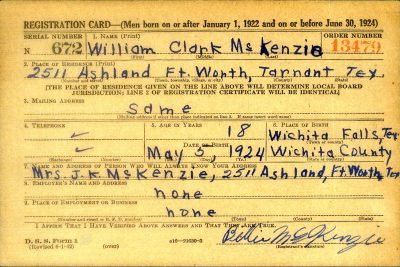 REGISTRATION CARD—(Men born on or after January 1, 1922 and on or before June 30, 1924)
SERIAL NUMBER 1. NAME (Print) ORDER NUMBER
N 672 William Clark McKenzie 13479
2. PLACE OF RESIDENCE (Print)
2511 Ashland Ft. Worth, Tarrant Tex.
(Town, township, village, or city) (County) (State)
[THE PLACE OF RESIDENCE GIVEN ON THE LINE ABOVE WILL DETERMINE LOCAL BOARD
JURISDICTION; LINE 2 OF REGISTRATION CERTIFICATE WILL BE IDENTICAL]
3. MAILING ADDRESS
Same
[Mailing address if other than place indicated on line 2. If same insert word same]
4. TELEPHONE 5. AGE IN YEARS 6. PLACE OF BIRTH
18 Wichita Falls, Tex
DATE OF BIRTH
May 5, 1924 Wichita County
(Exchange) (Number) (Mo.) (Day) (Yr.) (State or country)
7. NAME AND ADDRESS OF PERSON WHO WILL ALWAYS KNOW YOUR ADDRESS
Mrs. J. K. McKenzie, 2511 Ashland, Ft. Worth Tex
8. EMPLOYER'S NAME AND ADDRESS
none
9. PLACE OF EMPLOYMENT OR BUSINESS
none
(Number and street or R. F. D. number) (Town) (County) (State)
I AFFIRM THAT I HAVE VERIFIED ABOVE ANSWERS AND THAT THEY ARE TRUE.
D. S. S. Form 1
McKenzie